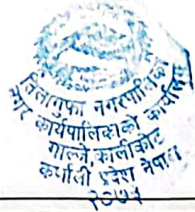 तिलागुफा नगरपालिका
नगर कार्यपालिकाको कार्यालय
गाल्जे, कालीकोट
कर्णाली प्रदेश नेपाल
२०७३